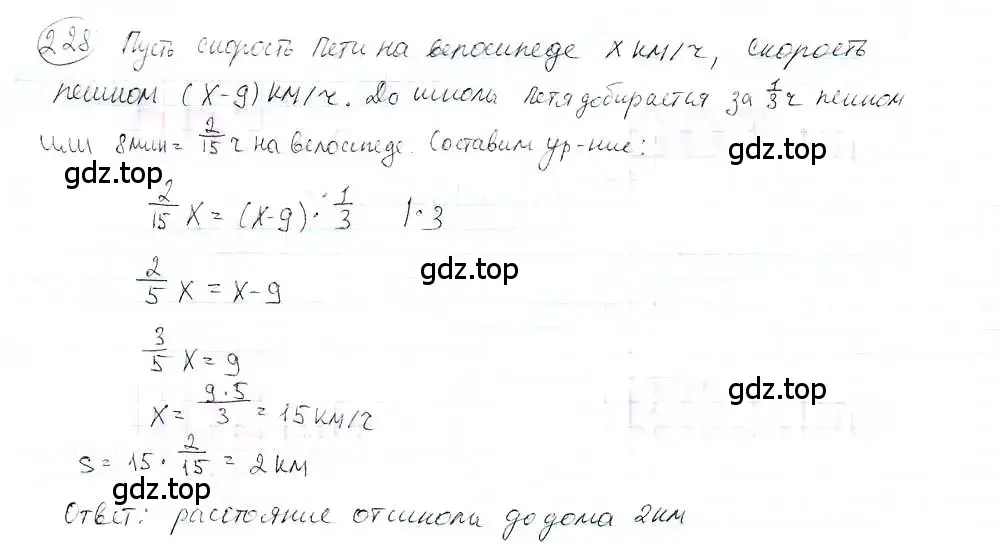 228 Пусть скорость Пети на велосипеде x км/ч, скорость
gdz.top
пешком (x-9) км/ч. До школы Петя добирается за 1/3 ч пешком
или 8 мин = 2/15 ч на велосипеде. Составим ур-ние:
gdz.top
gdz.top
2/15 x = (x-9) · 1/3 | · 3
gdz.top
2/5 x = x - 9
3/5 x = 9
gdz.top
x = 9·5/3 = 15 км/ч
s = 15 · 2/15 = 2 км
gdz.top
gdz.top
Ответ: расстояние от школы до дома 2 км